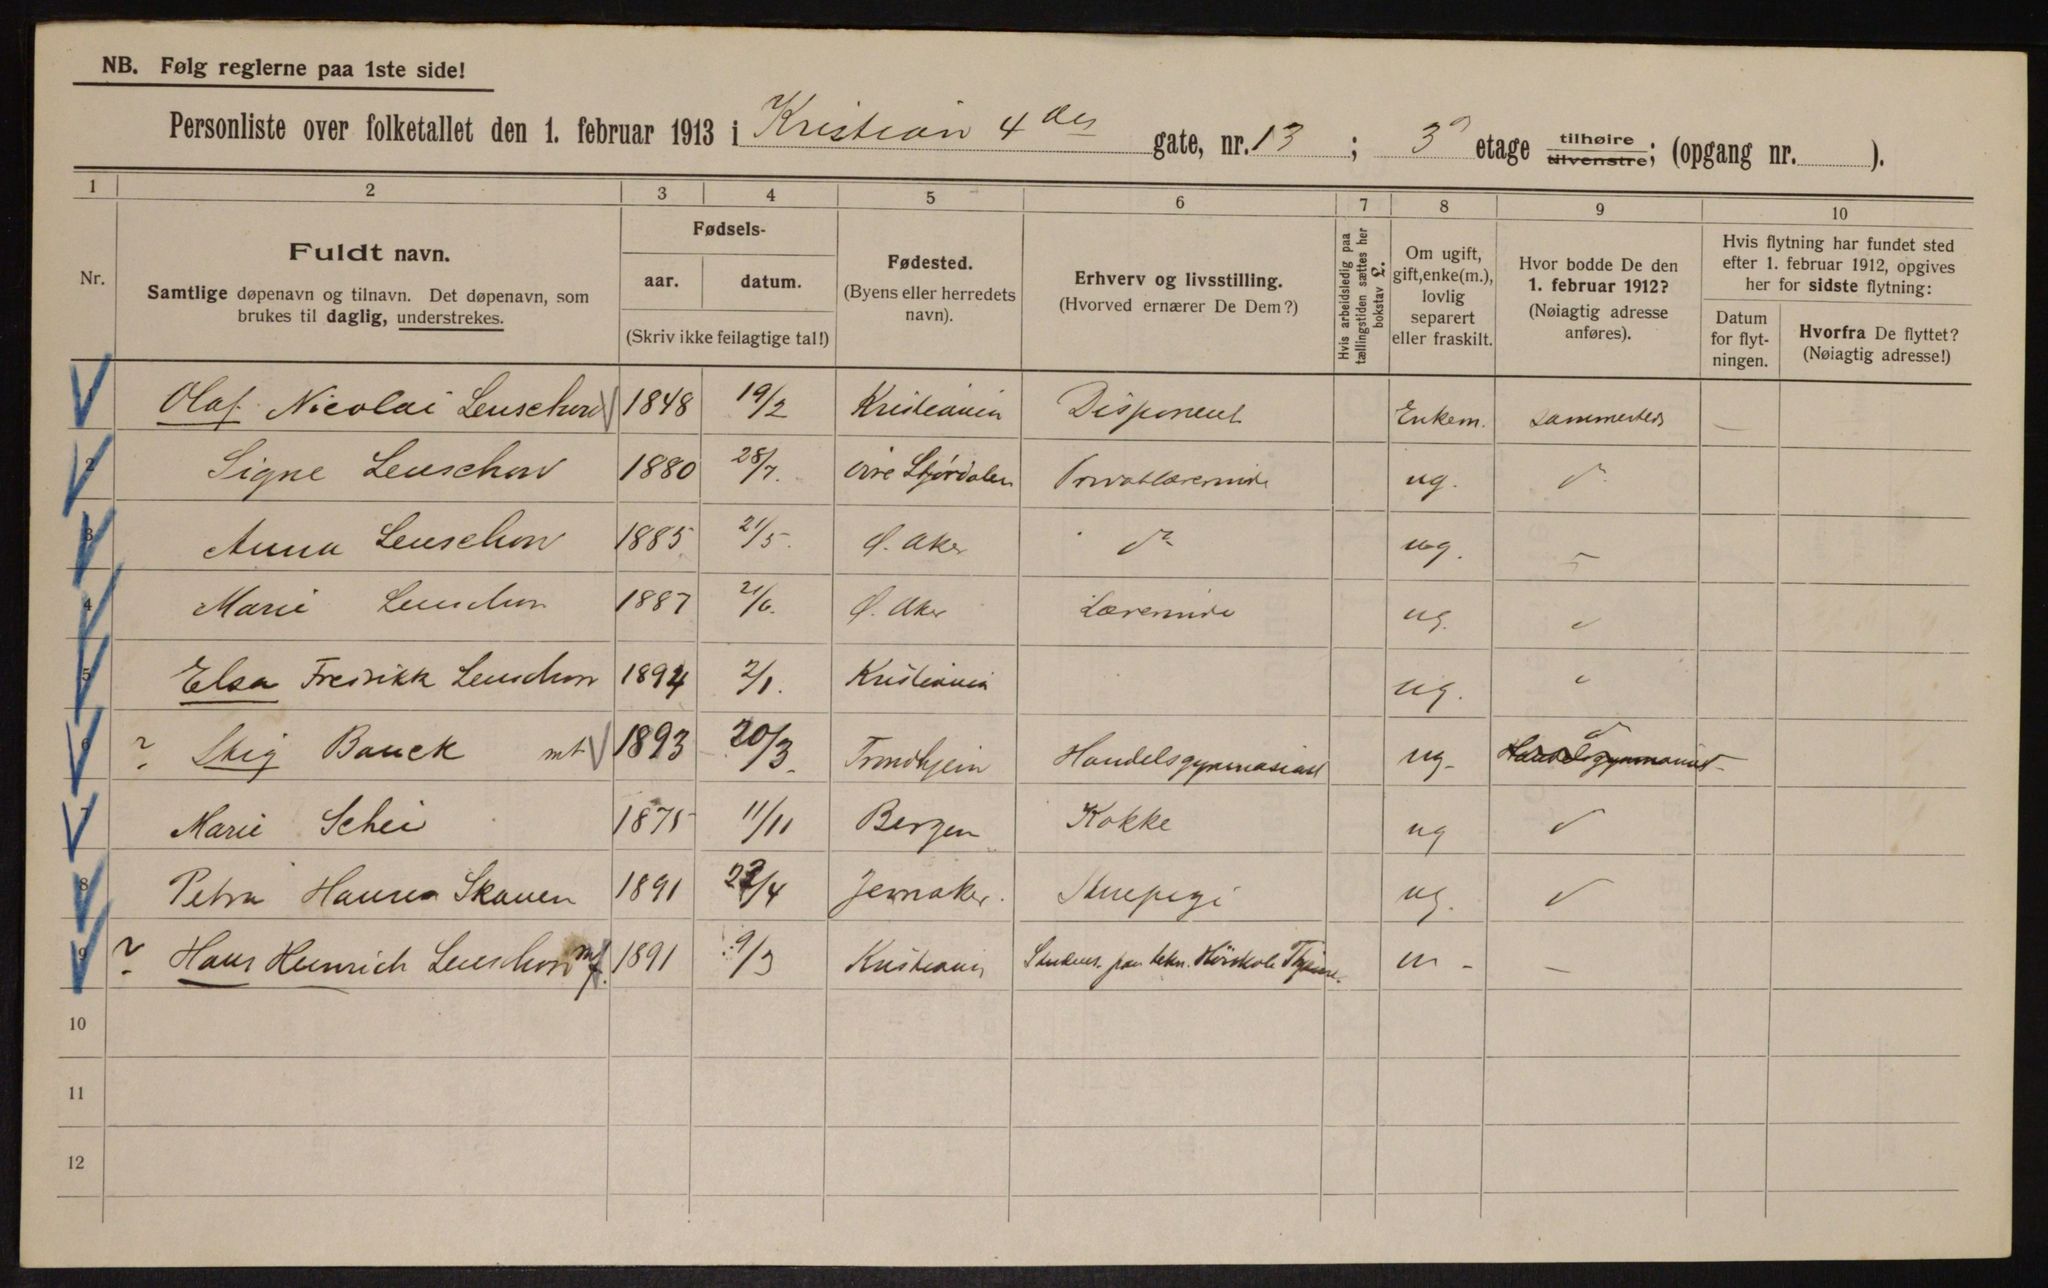 NB. Følg reglerne paa 1ste side!
Personliste over folketallet den 1. februar 1913 i Kristian 4des gate, nr. 13 ; 3die etage tilhøire tilvenstre; (opgang nr. ).
1 2 3 4 5 6 7 8 9 10
Nr.
Fuldt navn.
Samtlige døpenavn og tilnavn. Det døpenavn, som
brukes til daglig, understrekes.
Fødsels-
aar. datum.
(Skriv ikke feilagtige tal!)
Fødested.
(Byens eller herredets
navn).
Erhverv og livsstilling.
(Hvorved ernærer De Dem?)
Hvis arbeidsledig paa
tællingstiden sættes her
bokstav L.
Om ugift,
gift, enke(m.),
lovlig
separert
eller fraskilt.
Hvor bodde De den
1. februar 1912?
(Nøiagtig adresse
anføres).
Hvis flytning har fundet sted
efter 1. februar 1912, opgives
her for sidste flytning:
Datum
for flyt-
ningen.
Hvorfra De flyttet?
(Nøiagtig adresse!)
Olaf Nicolai Leuschow 1848 19/2 Kristiania Disponent Enkem. sammesteds —
2 Signe Leuschow 1880 28/7. Øvre Stjørdalen Privatlærerinde ug. do
3 Anna Leuschow 1885 21/5. Ø. Aker do ug.
4 Marie Leuschow 1887 2/6. Ø. Aker Lærerinde ug.
5 Elsa Fredrikk Leuschow 1894 2/1. Kristiania ug.
6 Stig Bauck mt 1893 20/3. Trondhjem Handelsgymnasiast ug. Handelsgymnasiast
7 Marie Schei 1875 11/11 Bergen Kokke ug do
8 Petra Hansen Skauen 1891 23/4 Jevnaker. Stuepige ug. do
9 Hans Heinrich Leuschow mf. 1891 9/3 Kristiania Student. paa tekn. Høiskole Thjem. u - —
10
11
12